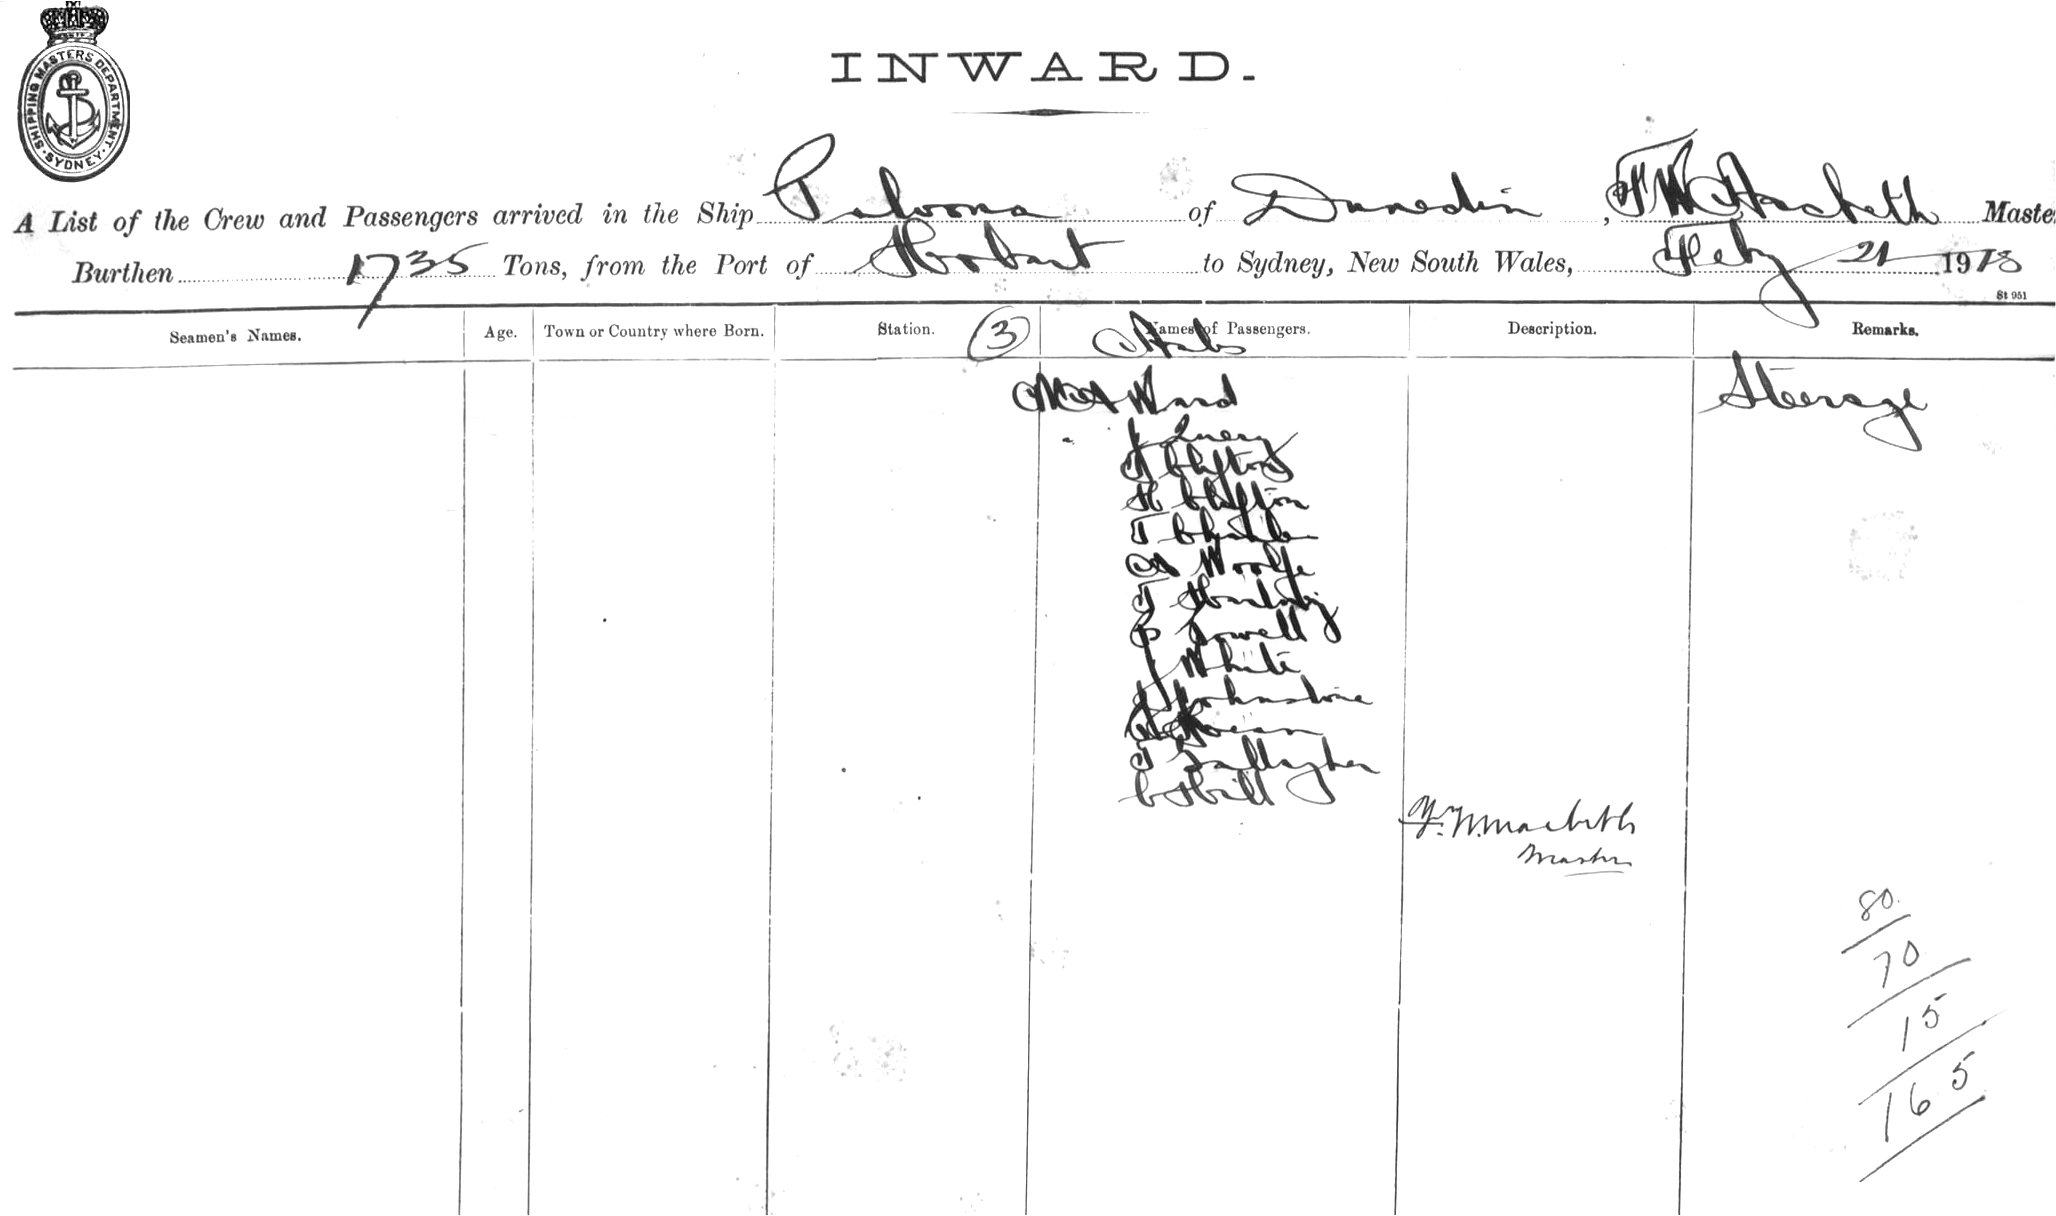 SHIPPING MASTERS DEPARTMENT. SYDNEY.
INWARD.
A List of the Crew and Passengers arrived in the Ship Paloona of Dunedin, Master
Burthen 1735 Tons, from the Port of Hobart to Sydney, New South Wales, Feby 21 1918
St 951
Seamen's Names. Age. Town or Country where Born. Station. 3 Names of Passengers. Description. Remarks.
Ward Steerage
J
Clifton
H Clifton
T
A Woolfe
T
P Powell
J White
J Johnstone
T Gallagher
Master
80
70
15
165